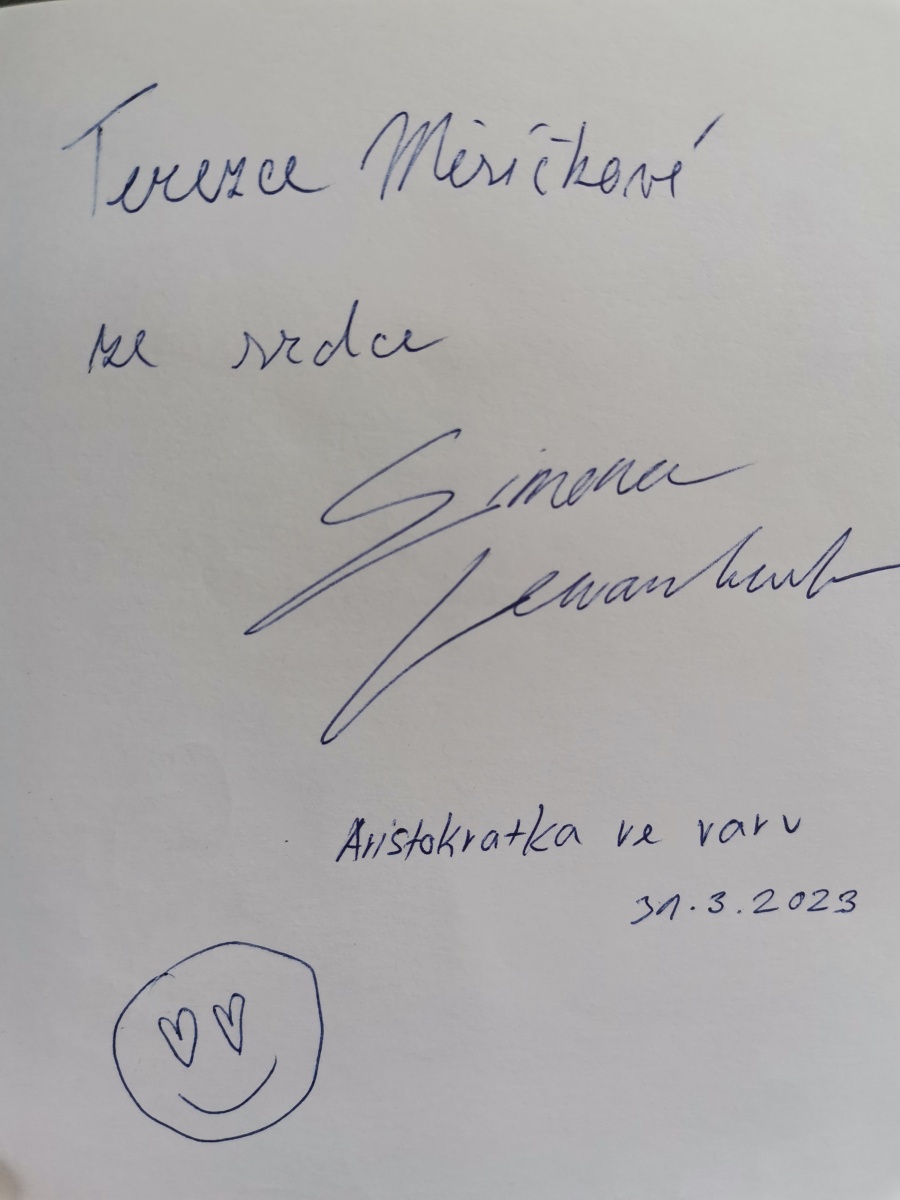 Terezce Měsíčkové
ze srdce
Simona
Aristokratka ve varu
31.3.2023